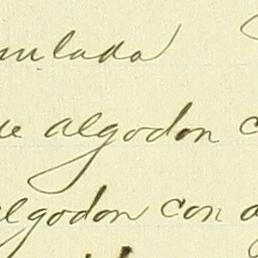 mulada
de algodon c
algodon con a